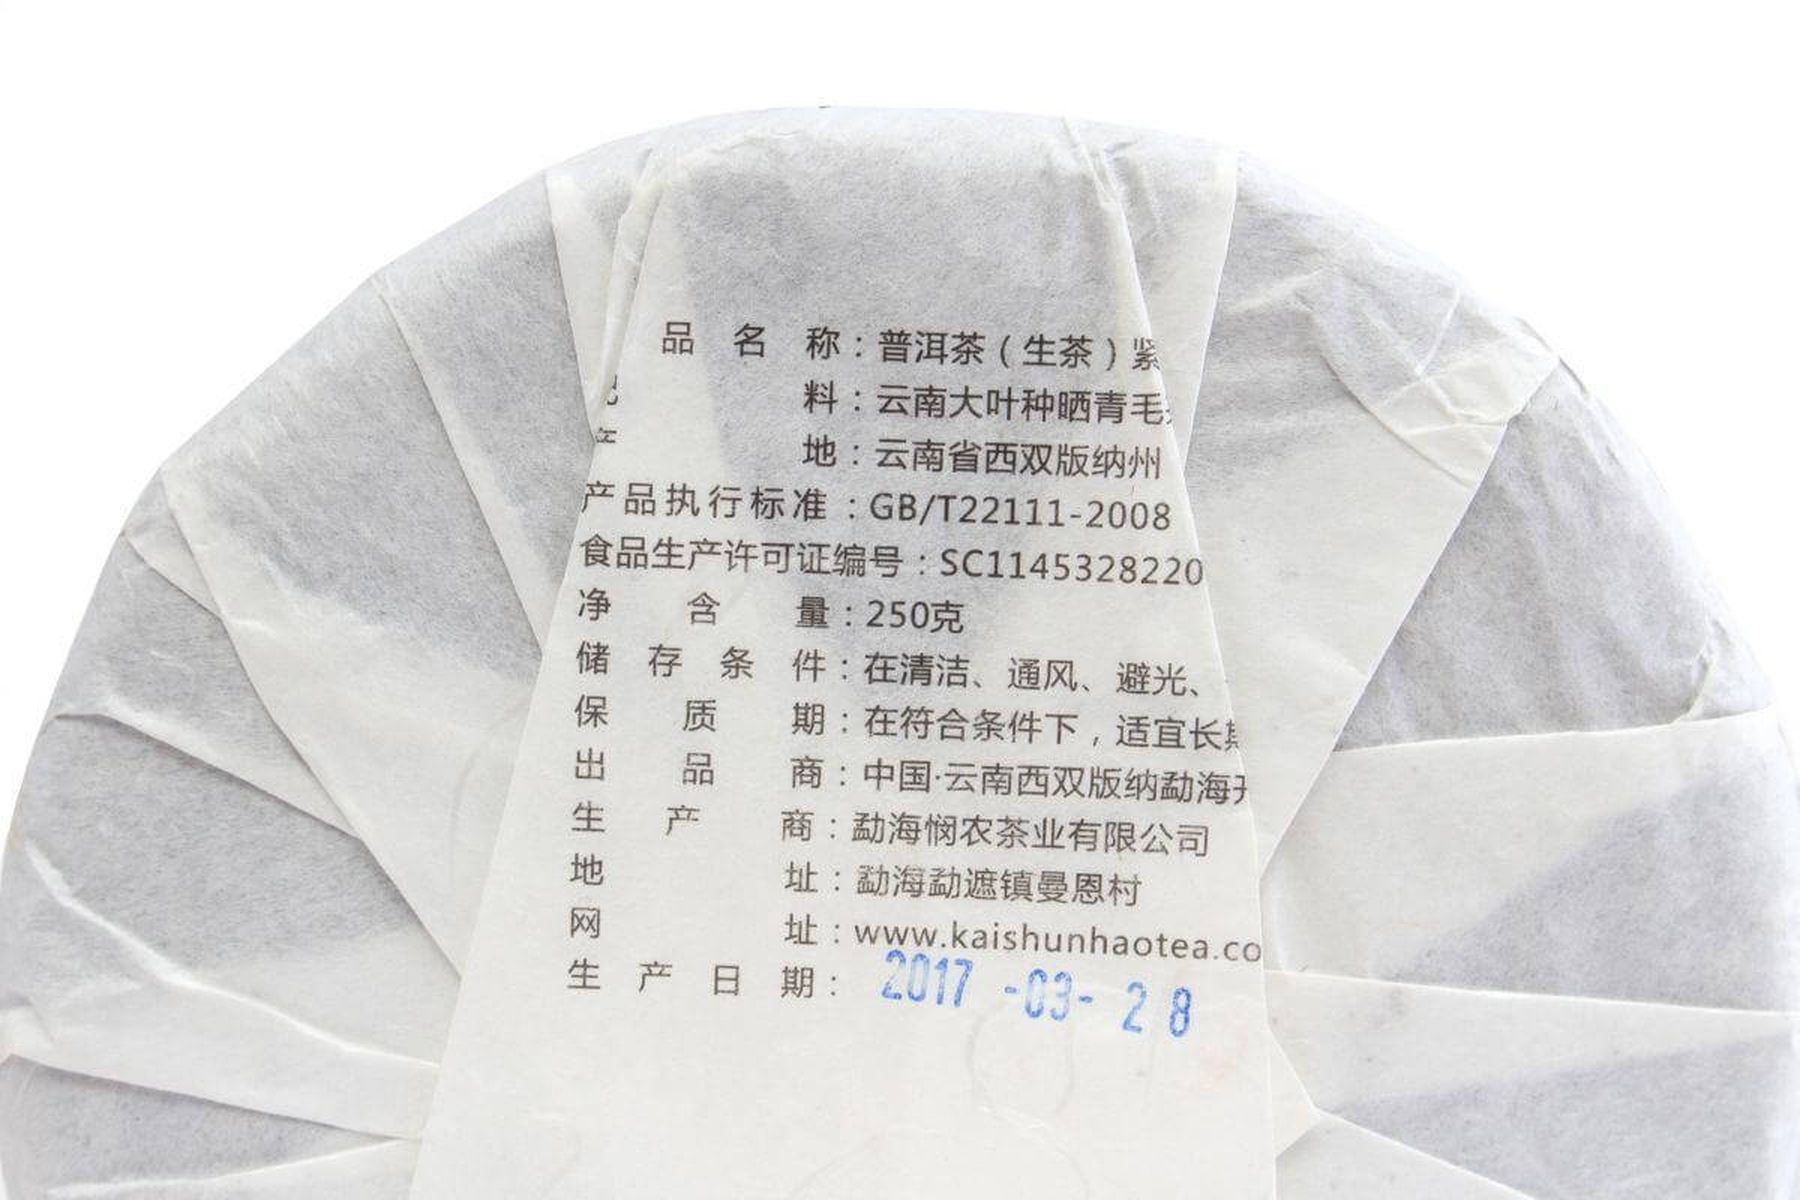 品名称：普洱茶（生茶）紧
料：云南大叶种晒青毛
产地：云南省西双版纳州
产品执行标准：GB/T22111-2008
食品生产许可证编号：SC1145328220
净含量：250克
储存条件：在清洁、通风、避光、
保质期：在符合条件下，适宜长
出品商：中国·云南西双版纳勐海
生产商：勐海悯农茶业有限公司
地址：勐海勐遮镇曼恩村
网址：www.kaishunhaotea.co
生产日期：2017-03-28